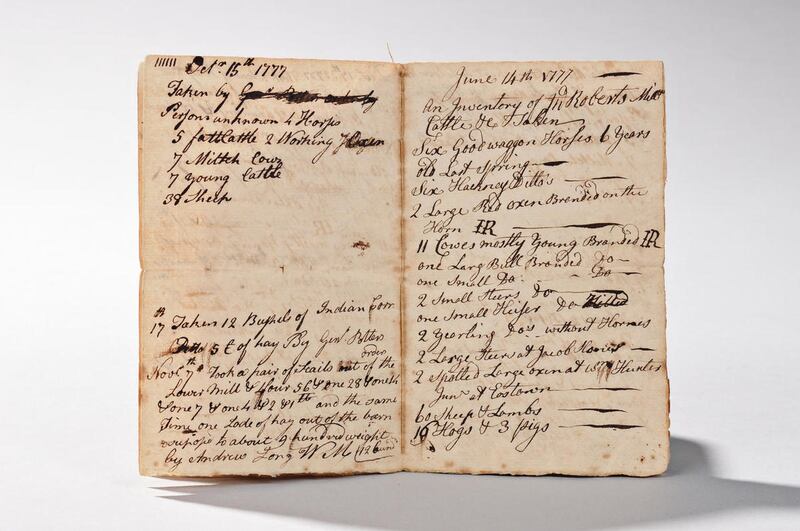 Octr. 15th 1777
Taken by Genl Potter order by
Persons unknown 4 Horses
5 fatt Cattle 2 Working Oxen
7 Milch Cows
7 Young Cattle
38 Sheep
17th Taken 12 Bushels of Indian Corn
5 C of hay By Genl Potters
order
Novr 7th Took a pair of Scails out of the
Lower Mill & four 56 & one 28 & one 14
& one 7 & one 4 & 2 & 1 lb and the same
Time one Lode of hay out of the barn
supose to about 9 hundred weight
by Andrew Long W M
June 14th 1777
an Inventory of Jno Roberts Millr
Cattle &c Taken
Six Good waggon Horses 6 Years
old Last Spring
Six Hackney Ditto's
2 Large Red oxen Branded on the
Horn IR
11 Cowes mostly Young Branded IR
one Larg Bull Branded Do
one Small Do Do
2 Small Steers Do
one Small Heifer Do
2 Yearling Do's without Hornes
2 Large Steers at Jacob
2 Spotted Large oxen at Hunter
Junr at Eastown
60 Sheep & Lambs
16 Hogs & 3 Pigs